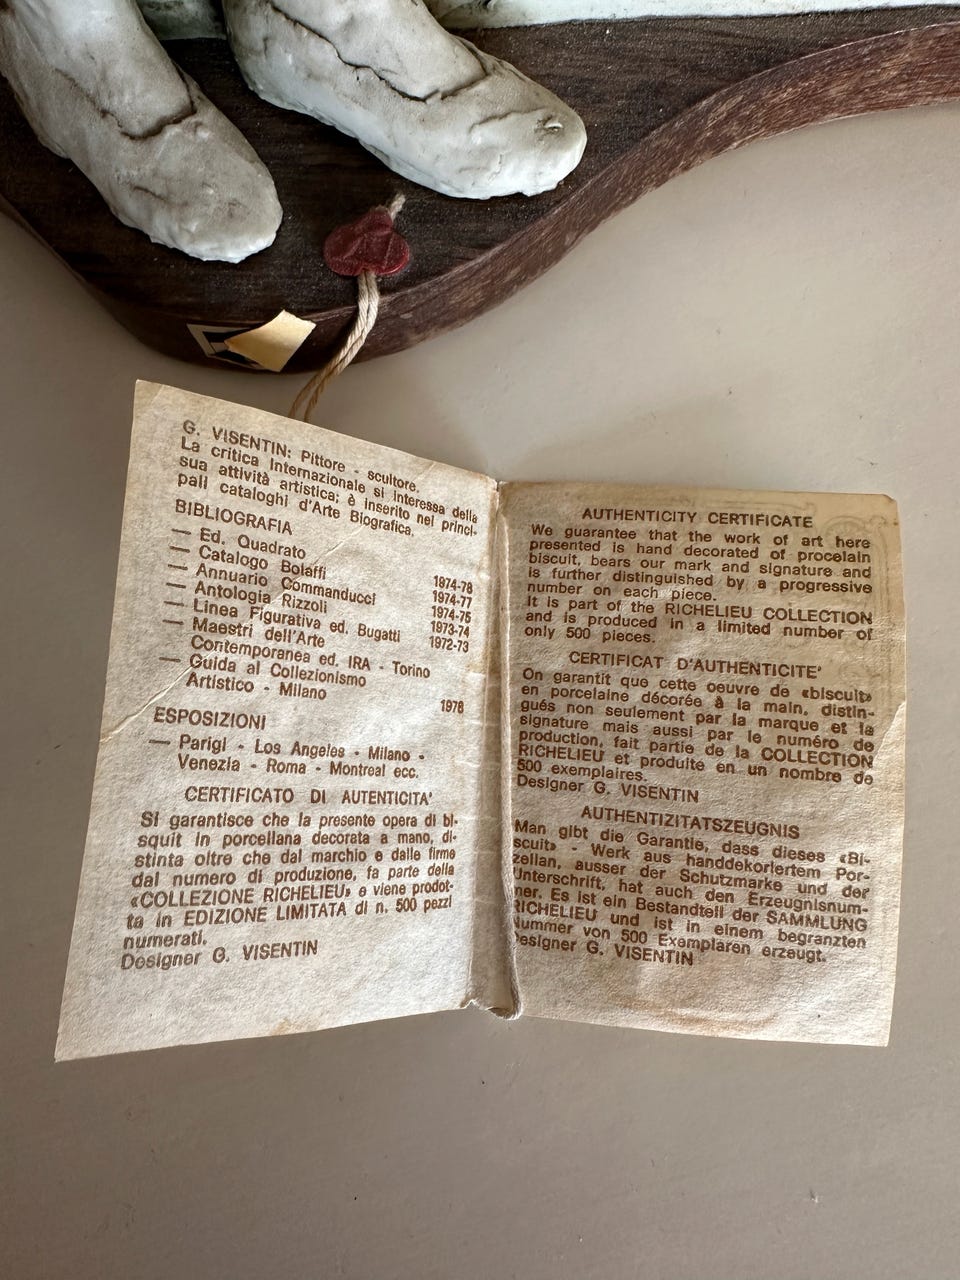 G. VISENTIN: Pittore - scultore.
La critica Internazionale si interessa della
sua attività artistica; è inserito nei princi-
pali cataloghi d'Arte Biografica.
BIBLIOGRAFIA
— Ed. Quadrato
— Catalogo Bolaffi 1974-78
— Annuario Commanducci 1974-77
— Antologia Rizzoli 1974-75
— Linea Figurativa ed. Bugatti 1973-74
— Maestri dell'Arte 1972-73
Contemporanea ed. IRA - Torino
— Guida al Collezionismo
Artistico - Milano 1978
ESPOSIZIONI
— Parigi - Los Angeles - Milano -
Venezia - Roma - Montreal ecc.
CERTIFICATO DI AUTENTICITA'
Si garantisce che la presente opera di bi-
squit in porcellana decorata a mano, di-
stinta oltre che dal marchio e dalle firme
dal numero di produzione, fa parte della
«COLLEZIONE RICHELIEU» e viene prodot-
ta in EDIZIONE LIMITATA di n. 500 pezzi
numerati.
Designer G. VISENTIN
AUTHENTICITY CERTIFICATE
We guarantee that the work of art here
presented is hand decorated of procelain
biscuit, bears our mark and signature and
is further distinguished by a progressive
number on each piece.
It is part of the RICHELIEU COLLECTION
and is produced in a limited number of
only 500 pieces.
CERTIFICAT D'AUTHENTICITE'
On garantit que cette oeuvre de «biscuit»
en porcelaine décorée à la main, distin-
gués non seulement par la marque et la
signature mais aussi par le numéro de
production, fait partie de la COLLECTION
RICHELIEU et produite en un nombre de
500 exemplaires.
Designer G. VISENTIN
AUTHENTIZITATSZEUGNIS
Man gibt die Garantie, dass dieses «Bi-
scuit» - Werk aus handdekoriertem Por-
zellan, ausser der Schutzmarke und der
Unterschrift, hat auch den Erzeugnisnum-
mer. Es ist ein Bestandteil der SAMMLUNG
RICHELIEU und ist in einem begranzten
Nummer von 500 Exemplaren erzeugt.
Designer G. VISENTIN